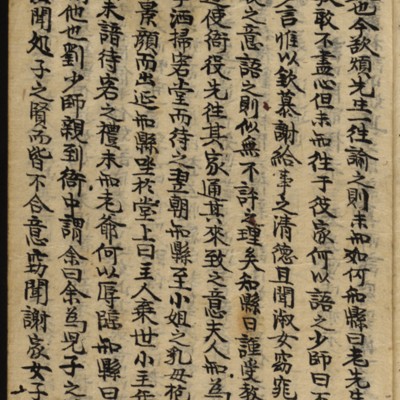 也今欲煩先生一往諭之則未知如何知縣曰老先生
敢不盡心但未知往于彼家何以語之少師曰不
言惟以欽慕謝給事之清德且聞淑女窈窕
之意語之則似無不許之理矣知縣曰謹受教
使衙役先往其家通其來致之意夫人知爲
洒掃客堂而待之翌朝知縣至小姐之乳母抱
景顔而出迎知縣坐於堂上曰主人棄世小主年
未諳待客之禮未知老爺何以辱臨知縣曰
他也劉少師親到衙中謂余曰余爲兒子之
聞処子之賢而皆不合意竊聞謝家女子